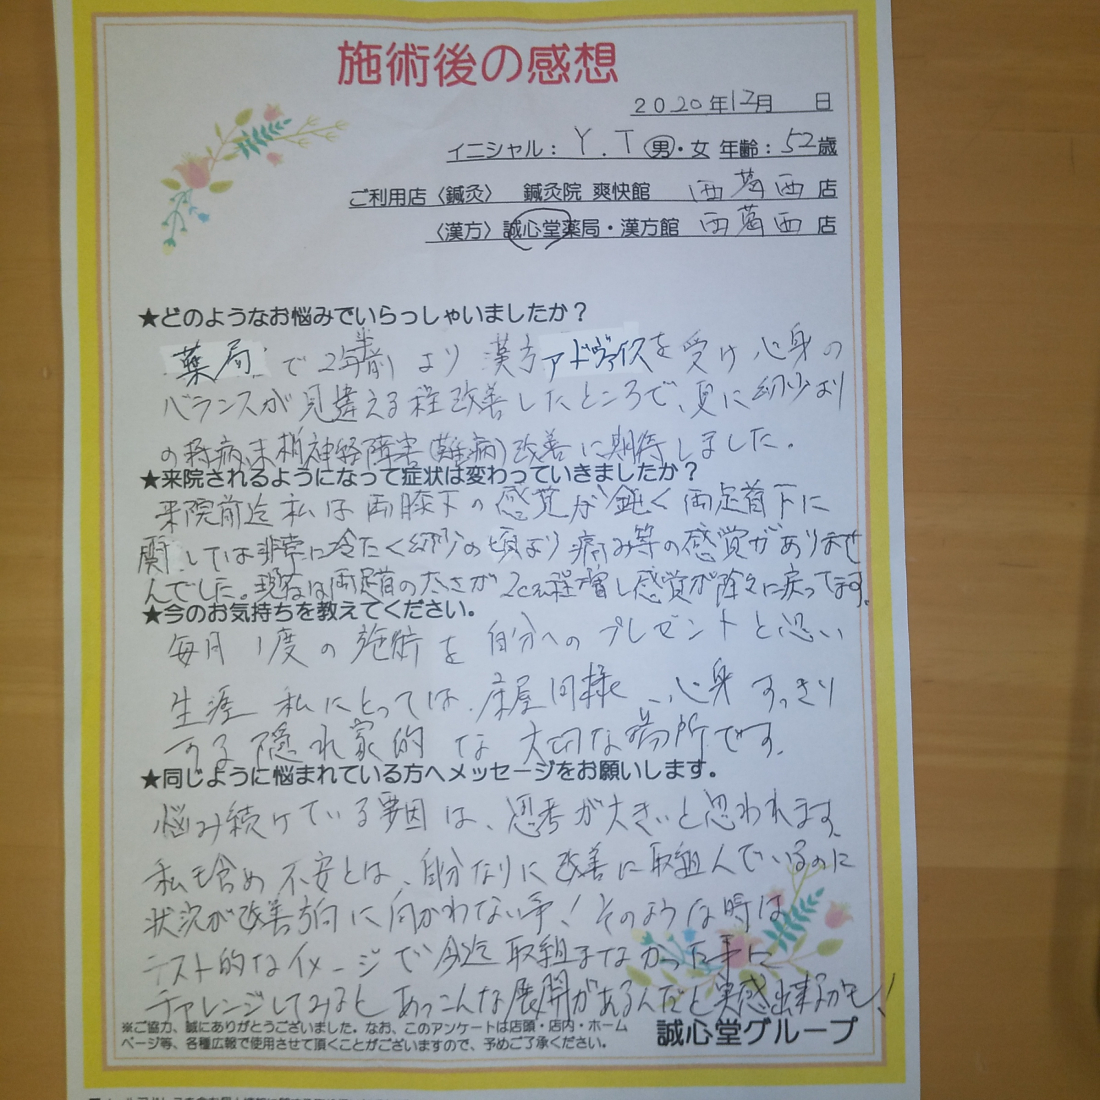 施術後の感想
2020年12月　　日
イニシャル： Y.T 男・女 年齢：52歳
ご利用店〈鍼灸〉　鍼灸院 爽快館　西葛西 店
〈漢方〉誠心堂薬局・漢方館　西葛西 店
★どのようなお悩みでいらっしゃいましたか？
薬局で2年半前より漢方アドヴァイスを受け心身の
バランスが見違える程改善したところで、更に幼少より
の持病、末梢神経障害(難病)改善に期待しました。
★来院されるようになって症状は変わっていきましたか？
来院前迄私は両膝下の感覚が鈍く両足首下に
関しては非常に冷たく幼少の頃より痛み等の感覚がありませ
んでした。現在は両足首の太さが2cm程増し感覚が除々に戻ってます。
★今のお気持ちを教えてください。
毎月1度の施術を自分へのプレゼントと思い
生涯私にとっては、床屋同様、心身すっきり
する隠れ家的な大切な場所です。
★同じように悩まれている方へメッセージをお願いします。
悩み続けている要因は、思考が大きいと思われます。
私も含め不安とは、自分なりに改善に取組んでいるのに
状況が改善方向に向かわない事！そのような時は
テスト的なイメージで今迄取組まなかった事に
チャレンジしてみるとあっこんな展開があるんだと実感出来るかも！
※ご協力、誠にありがとうございました。なお、このアンケートは店頭・店内・ホーム
ページ等、各種広報で使用させて頂くことがございますので、予めご了承ください。
誠心堂グループ